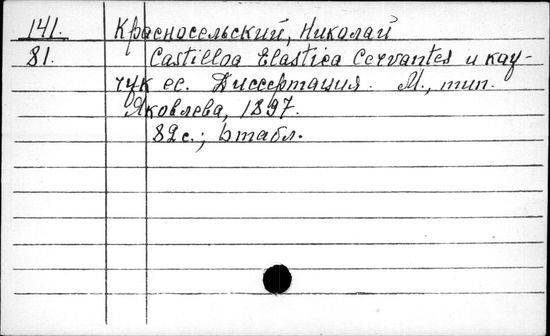 141. Красносельский, Николай
81. Castilloa Elastica Cervantes и кау-
чук ее. Диссертация. М., тип.
Яковлева, 1897.
82 с.; 6 табл.